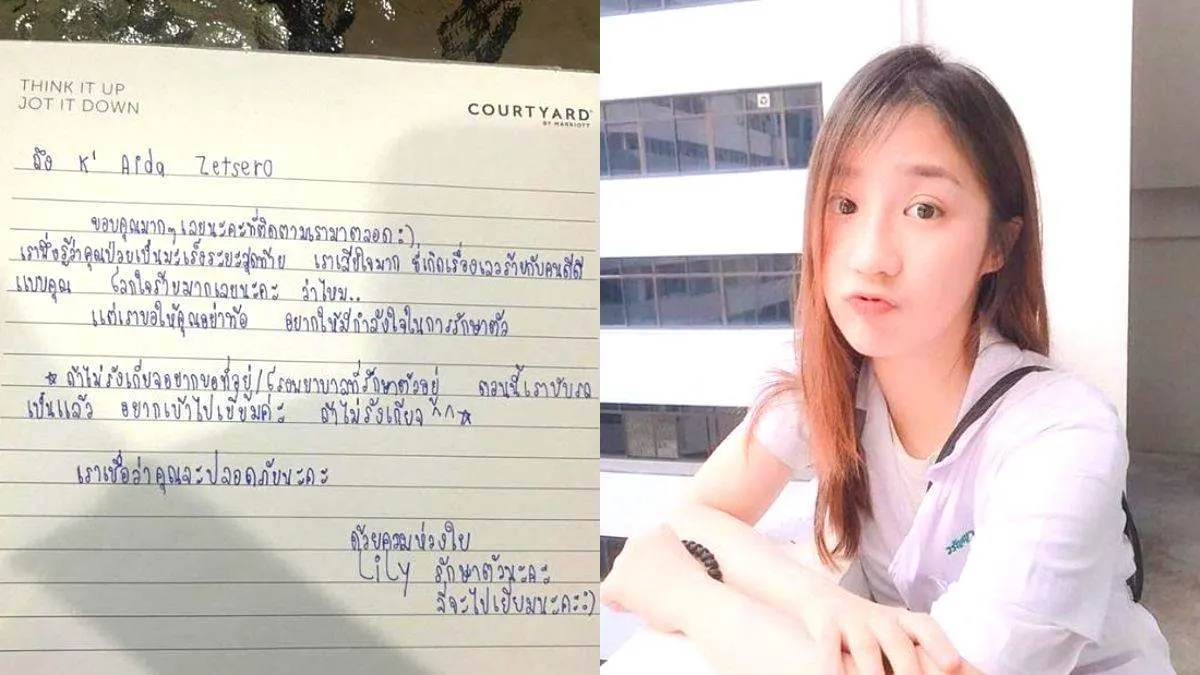 THINK IT UP
JOT IT DOWN
COURTYARD
BY MARRIOTT
ถึง K' Aida Zetsero
ขอบคุณมากๆเลยนะคะที่ติดตามเรามาตลอด :)
เราพึ่งรู้ว่าคุณป่วยเป็นมะเร็งระยะสุดท้าย เราเสียใจมาก ที่เกิดเรื่องเลวร้ายกับคนดีดี
แบบคุณ โลกใจร้ายมากเลยนะคะ ว่าไหม..
แต่เราขอให้คุณอย่าท้อ อยากให้มีกำลังใจในการรักษาตัว
☆ ถ้าไม่รังเกียจอยากขอที่อยู่/โรงพยาบาลที่รักษาตัวอยู่ ตอนนี้เราขับรถ
เป็นแล้ว อยากเข้าไปเยี่ยมค่ะ ถ้าไม่รังเกียจ ^^ ☆
เราเชื่อว่าคุณจะปลอดภัยนะคะ
ด้วยความห่วงใย
Lily รักษาตัวนะคะ
จะไปเยี่ยมนะคะ :)